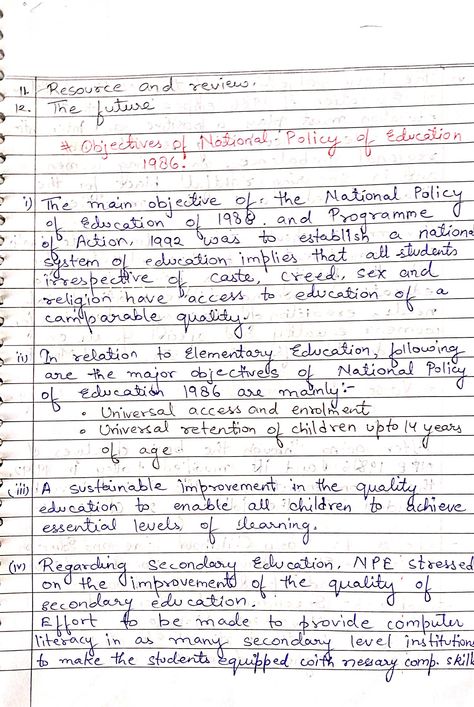 11. Resource and review.
12. The future
# Objectives of National Policy of Education
1986.
i) The main objective of the National Policy
of Education of 1986 and Programme
of Action, 1992 was to establish a national
system of education implies that all students
irrespective of caste, creed, sex and
religion have access to education of a
camparable quality.
iv) In relation to Elementary Education, following
are the major objectives of National Policy
of Education 1986 are mainly:-
• Universal access and enrolment
• Universal retention of children upto 14 years
of age
(iii) A sustainable improvement in the quality
education to enable all children to achieve
essential levels of learning.
(iv) Regarding Secondary Education, NPE stressed
on the improvement of the quality of
secondary education.
Effort to be made to provide computer
literacy in as many secondary level institution
to make the students equipped with nessary comp. skill